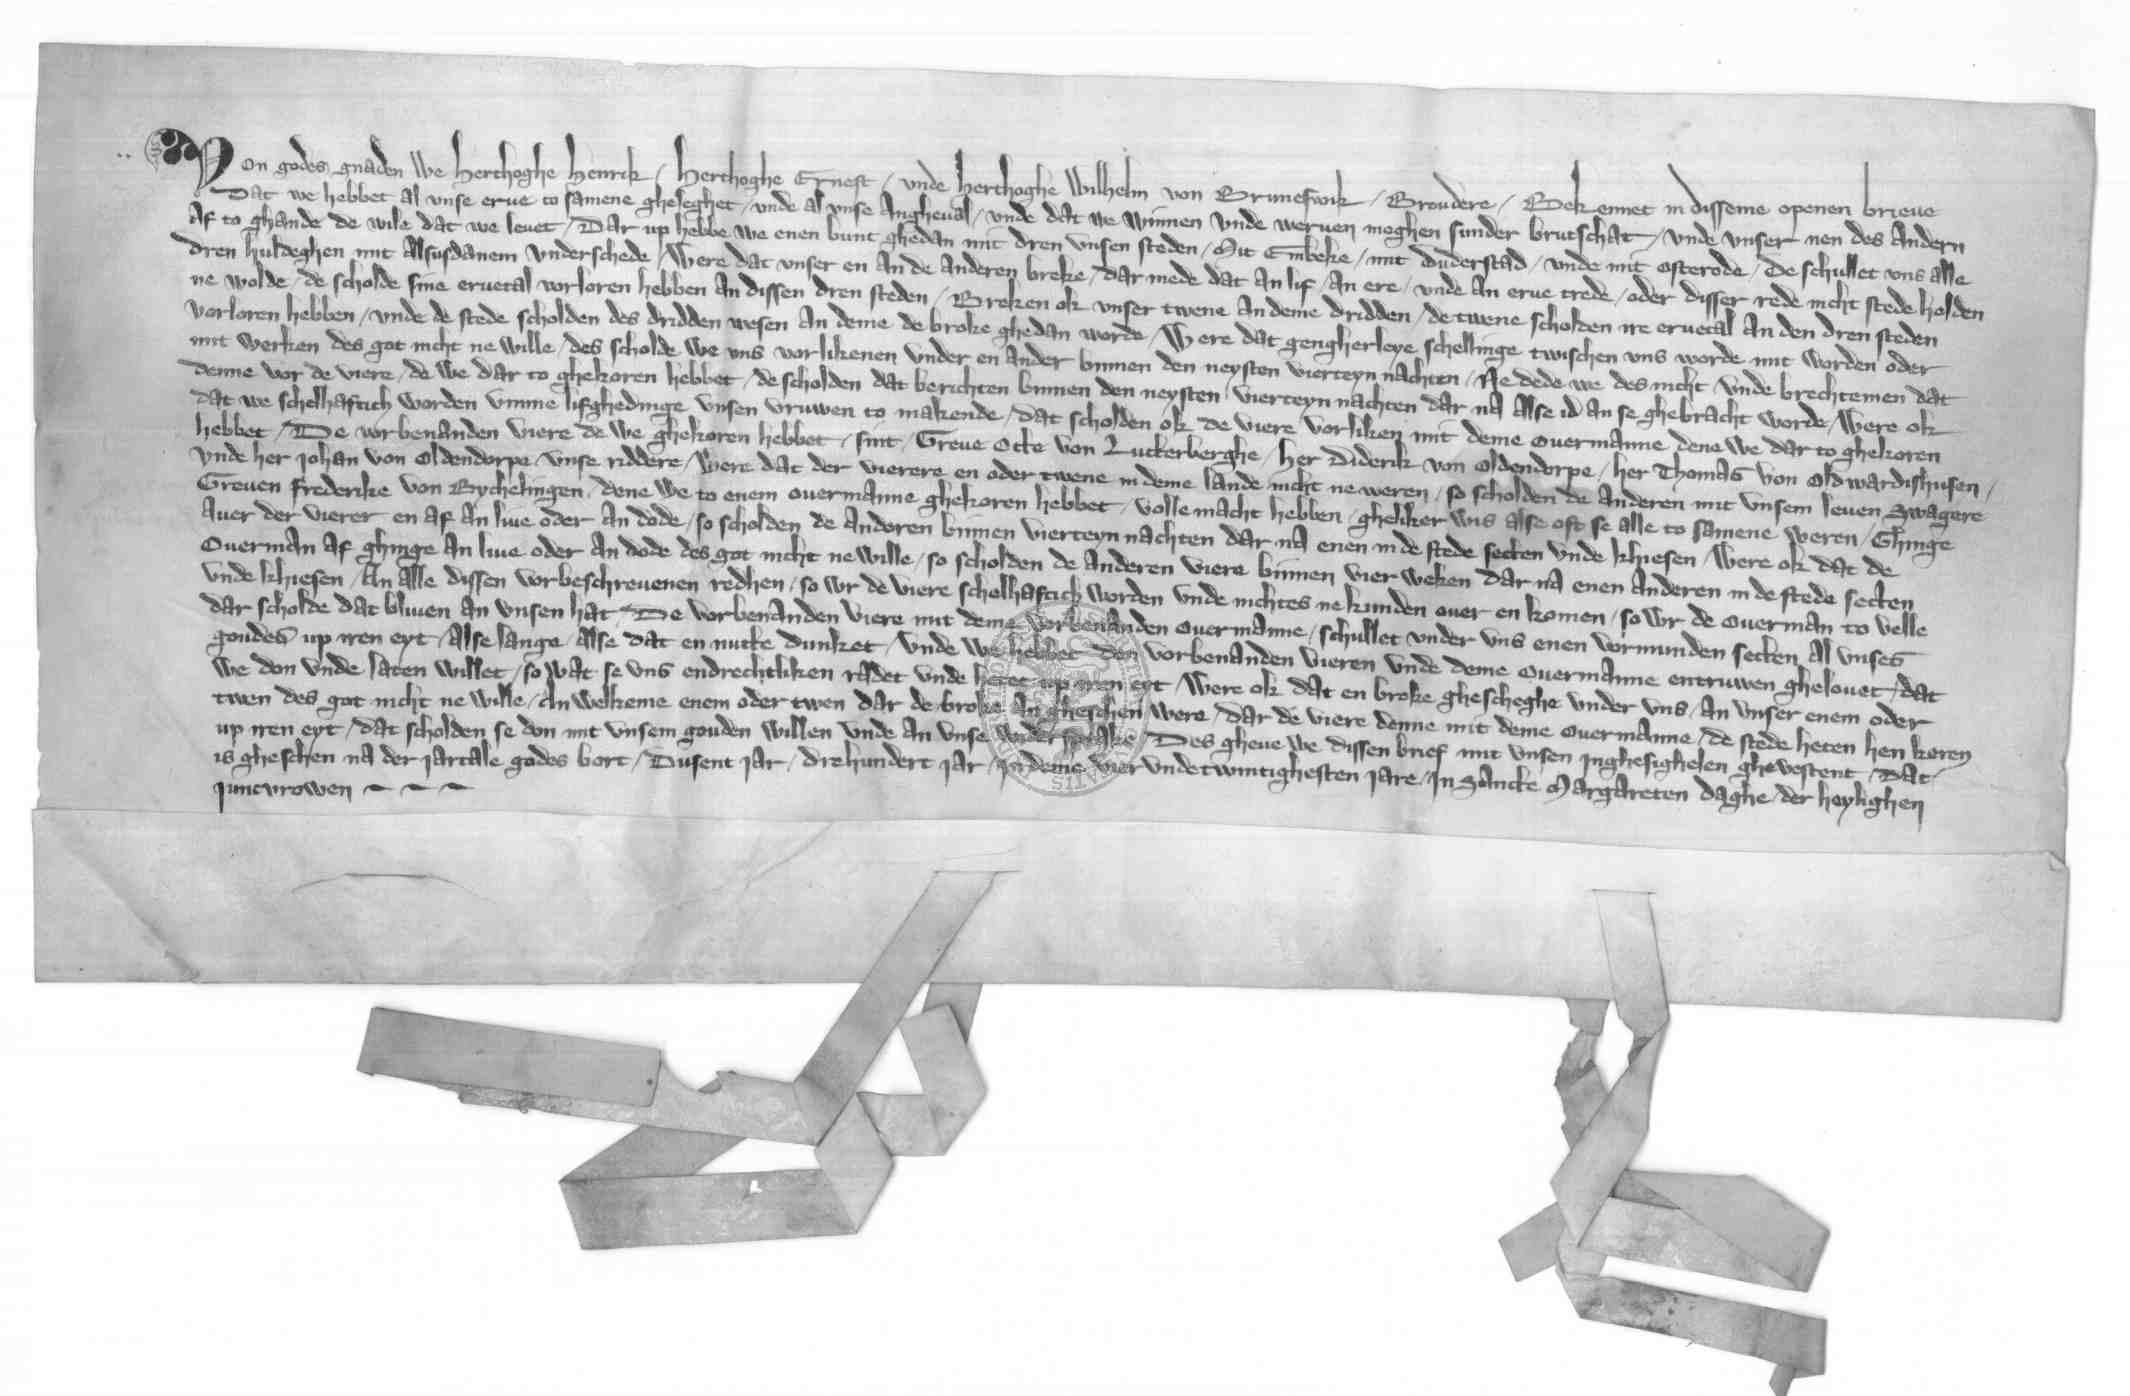 Von godes gnaden We Herthoghe Henrik / Herthoghe Ernest / vnde Herthoghe Wilhelm von Bruneswik / Broudere / Bekennet in disseme openen brieue
Dat we hebbet al vnse erue to samene gheleghet / vnde al vnse Angheual / vnde dat we winnen vnde weruen moghen sunder brutschat / vnde vnser nen des Andern
Af to ghande de wile dat we leuet / Dar up hebbe we enen bunt ghedan mit dren vnsen steden / Mit Embeke / mit Duderstad / vnde mit Osterode / De schullet vns alle
dren huldeghen mit Alsusdanem vnderschede / Were dat vnser en An de Anderen breke / dar mede dat An lif / An ere / vnde An erue trede / oder disser rede nicht stede holden
ne wolde / de scholde sine eruetal vorloren hebben An dissen dren steden / Breken ok vnser twene An deme dridden / de twene scholden ire eruetal An den dren steden
vorloren hebben / vnde de stede scholden des dridden wesen An deme de broke ghedan worde / Were dat gengherleye schellinge twischen vns worde mit worden oder
mit werken des got nicht ne wille / des scholde we vns vorlikenen vnder en ander binnen den neysten vierteyn nachten / Ne dede we des nicht vnde brechtemen dat
denne vor de viere / de we dar to ghekoren hebbet / de scholden dat berichten binnen den neysten vierteyn nachten dar na Alse id an se ghebracht worde / Were ok
dat we schelhaftich worden vmme lifghedinge vnsen vruwen to makende / dat scholden ok de viere vorliken mit deme ouermanne dene we dar to ghekoren
hebbet / De vorbenanden viere de we ghekoren hebbet / sint / Greue Otte von Lutterberghe / her Diderik von Oldendorpe / her Thomas von Oldwardishusen /
vnde her Johan von Oldendorpe / vnse riddere / Were dat der vierere en oder twene in deme lande nicht ne weren / so scholden de Anderen mit vnsem leuen Zwagere
Greuen Frederike von Bychelingen / dene we to enem ouermanne ghekoren hebbet / volle macht hebben / gheliker wis alse oft se alle to samene weren / Ghinge
Auer der vierer en af An liue oder An dode / so scholden de Anderen binnen vierteyn nachten dar na enen in de stede setten vnde khiesen / Were ok dat de
Ouerman Af ghinge An liue oder An dode des got nicht ne wille / so scholden de Anderen viere binnen vier weken dar na enen Anderen in de stede setten
vnde khiesen / An alle dissen vorbeschreuenen redhen / so wr de viere schelhaftich worden vnde nichtes ne kunden ouer en komen / so wr de ouerman to velle
dar scholde dat bliuen An vnsen hat / De vorbenanden viere mit deme vorbenanden ouermanne / schullet vnder vns enen vormunden setten al vnses
goudes up iren eyt / Alse lange / Alse dat en nutte dunket / vnde we hebbet den vorbenanden vieren vnde deme ouermanne entruwen ghelouet / dat
we don vnde laten willet / so wat se vns endrechtliken radet vnde hetet up iren eyt / Were ok dat en broke ghescheghe vnder vns / An vnser enem oder
twen des got nicht ne wille / An welkeme enem oder twen dar de broke An gheschen were / dar de viere denne mit deme ouermanne / de stede heten hen keren
up iren eyt / dat scholden se don mit vnsem gouden willen vnde An vnse wedersprake / Des gheue we dissen brief mit vnsen Jnghesighelen gheuestent / Dat
is gheschen na der jartale godes bort / Dusent jar / drehundert jar / Jn deme vier vnde twintighesten jare / Jn Sancte Margareten daghe / der heylighen
juncvrowen